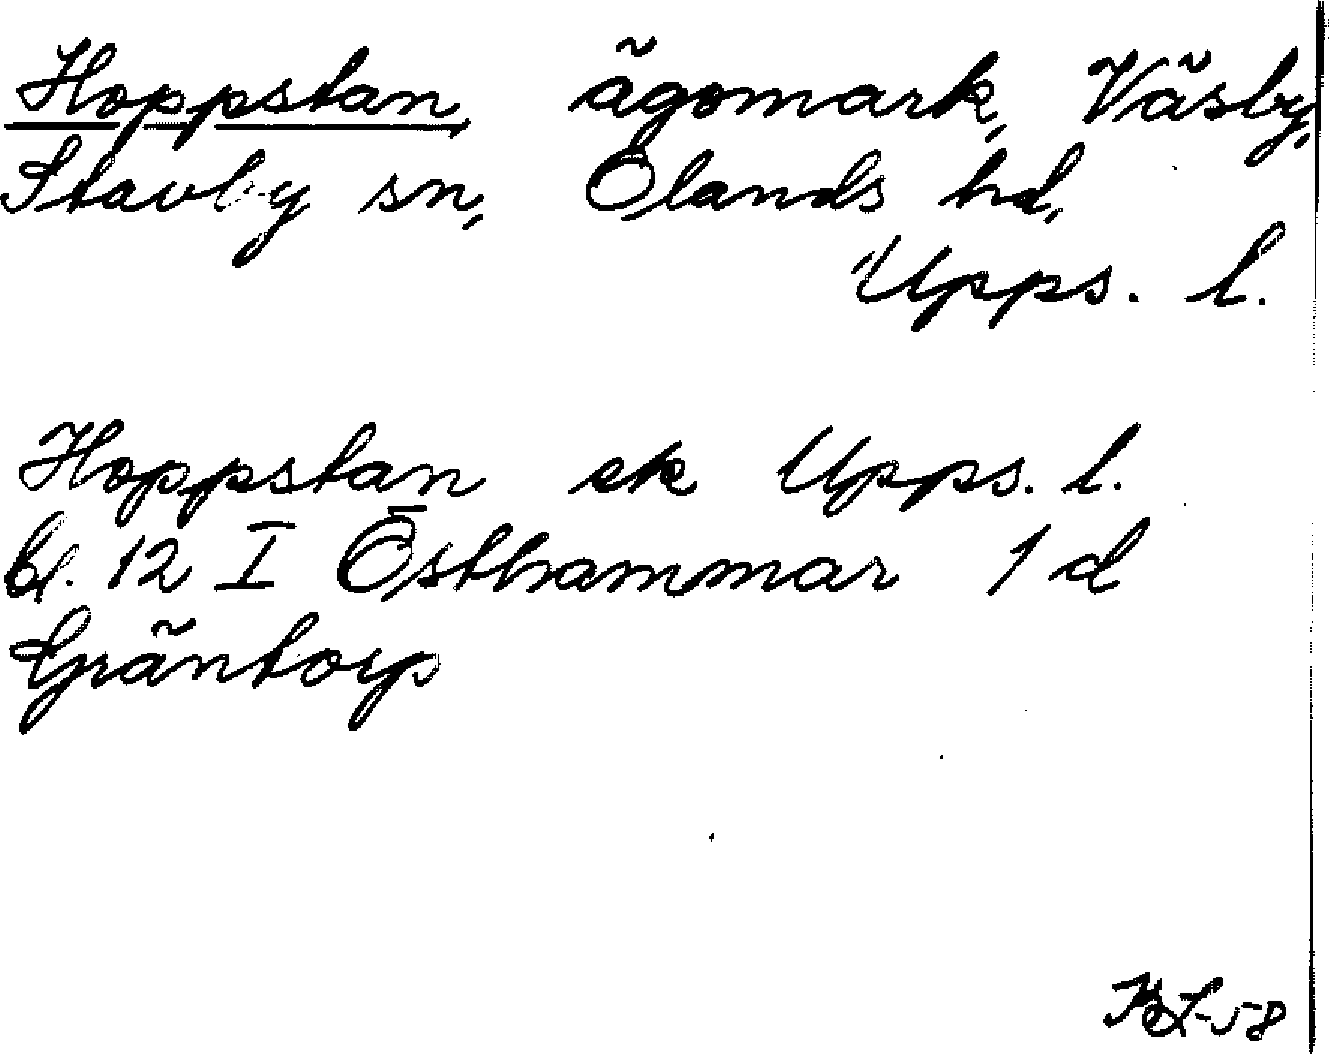 Hoppstan, ägomark, Väsby,
Stavby sn, Ölands hd,
Upps. l.
Hoppstan ek Upps. l.
bl. 12 I Östhammar 1 d
Gräntorp